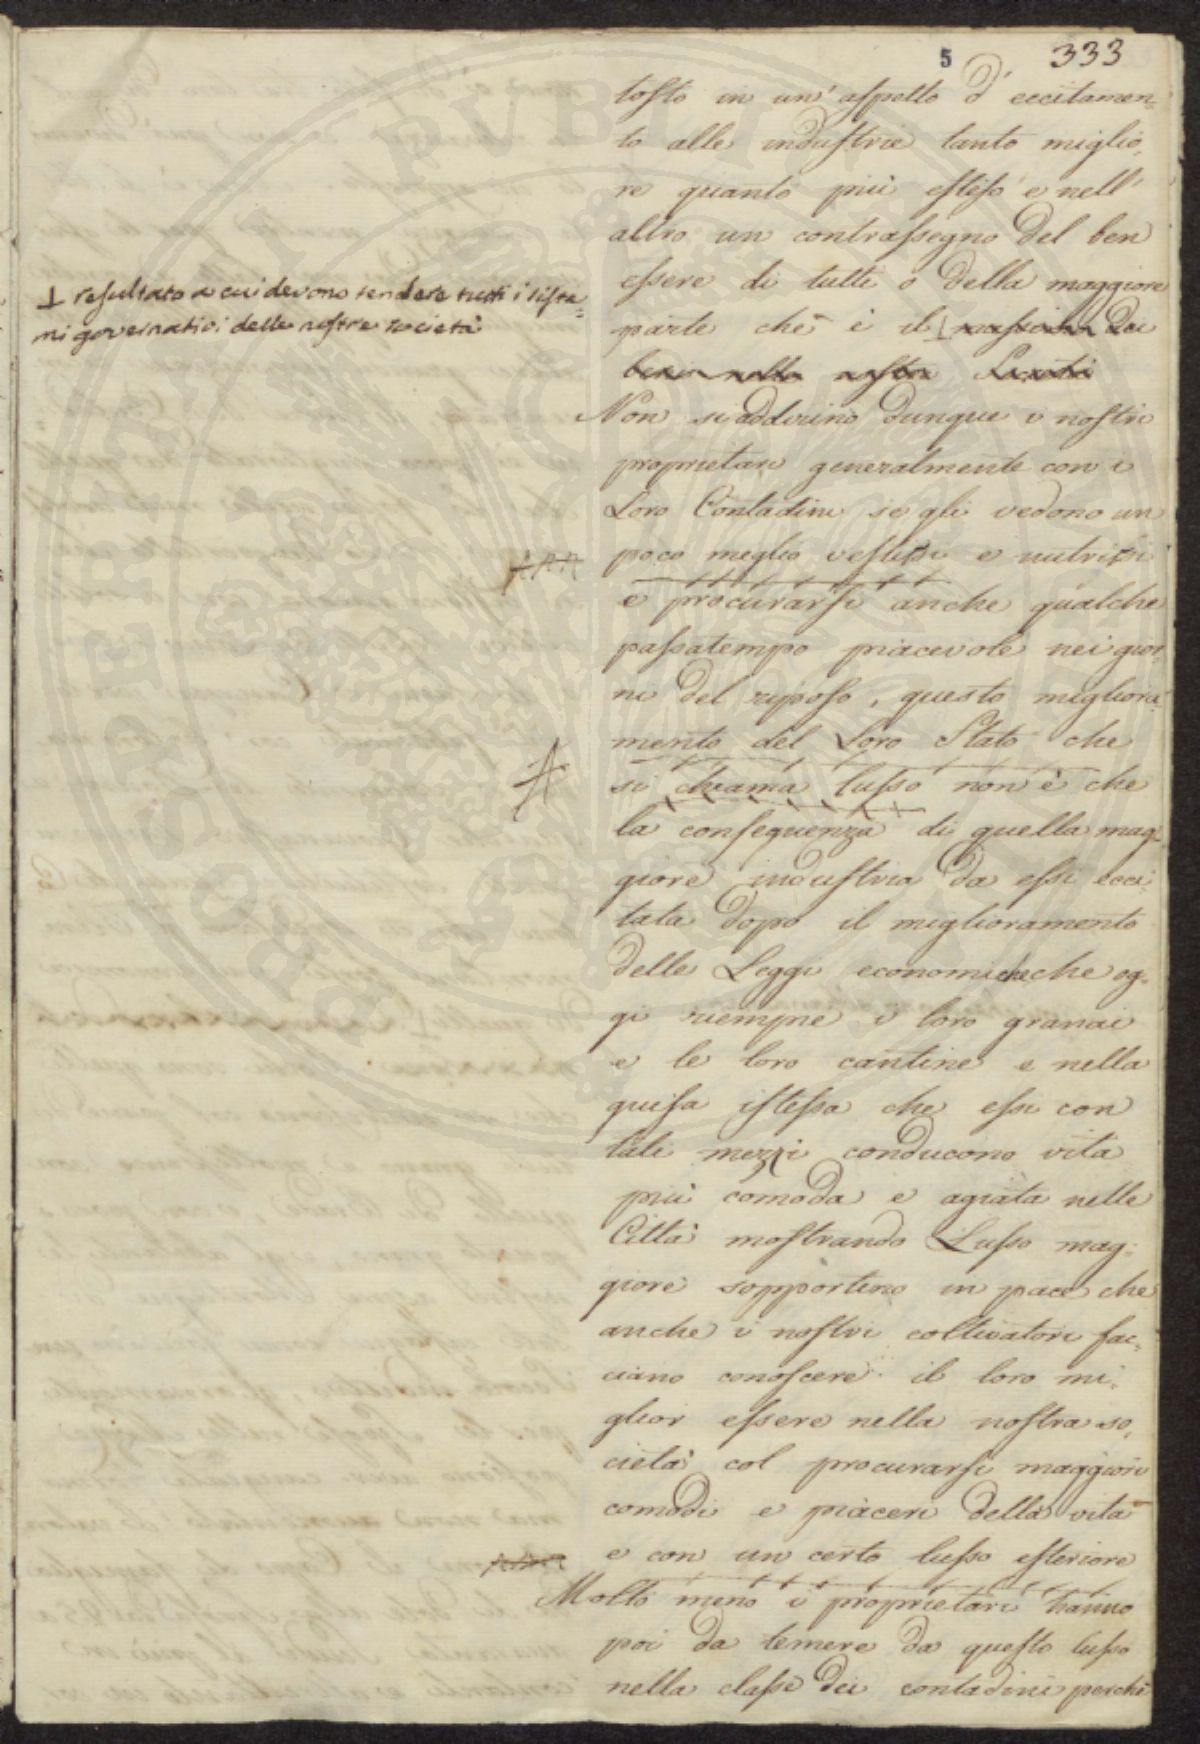 5 333
tosto in un' aspetto d' eccitamen-
to alle industrie tanto miglio-
re quanto più esteso e nell'
altro un contrassegno del ben
essere di tutti o della maggiore
parte che è il ⊥
⊥ resultato a cui devono tendere tutti i siste=
mi governativi delle nostre società
Non si adducino dunque i nostri
proprietari generalmente con i
Loro Contadini se gli vedono un
poco meglio vestiti e nutriti
e procurarsi anche qualche
passatempo piacevole nei gior-
ni del riposo, questo migliora-
mento del Loro Stato che
si chiama lusso non è che
la conseguenza di quella mag-
giore industria da essi ecci-
tata dopo il miglioramento
delle Leggi economiche che og-
gi riempie i loro granai
e le loro cantine e nella
guisa istessa che essi con
tali mezzi conducono vita
più comoda e agiata nelle
Città mostrando Lusso mag-
giore sopportino in pace che
anche i nostri coltivatori fac-
ciano conoscere il loro mi-
glior essere nella nostra so-
cietà col procurarsi maggiori
comodi e piaceri della vita
e con un certo lusso esteriore
Molto meno i proprietari hanno
poi da temere da questo lusso
nella classe dei contadini perchè
PROSPERITATI PUBLICAE